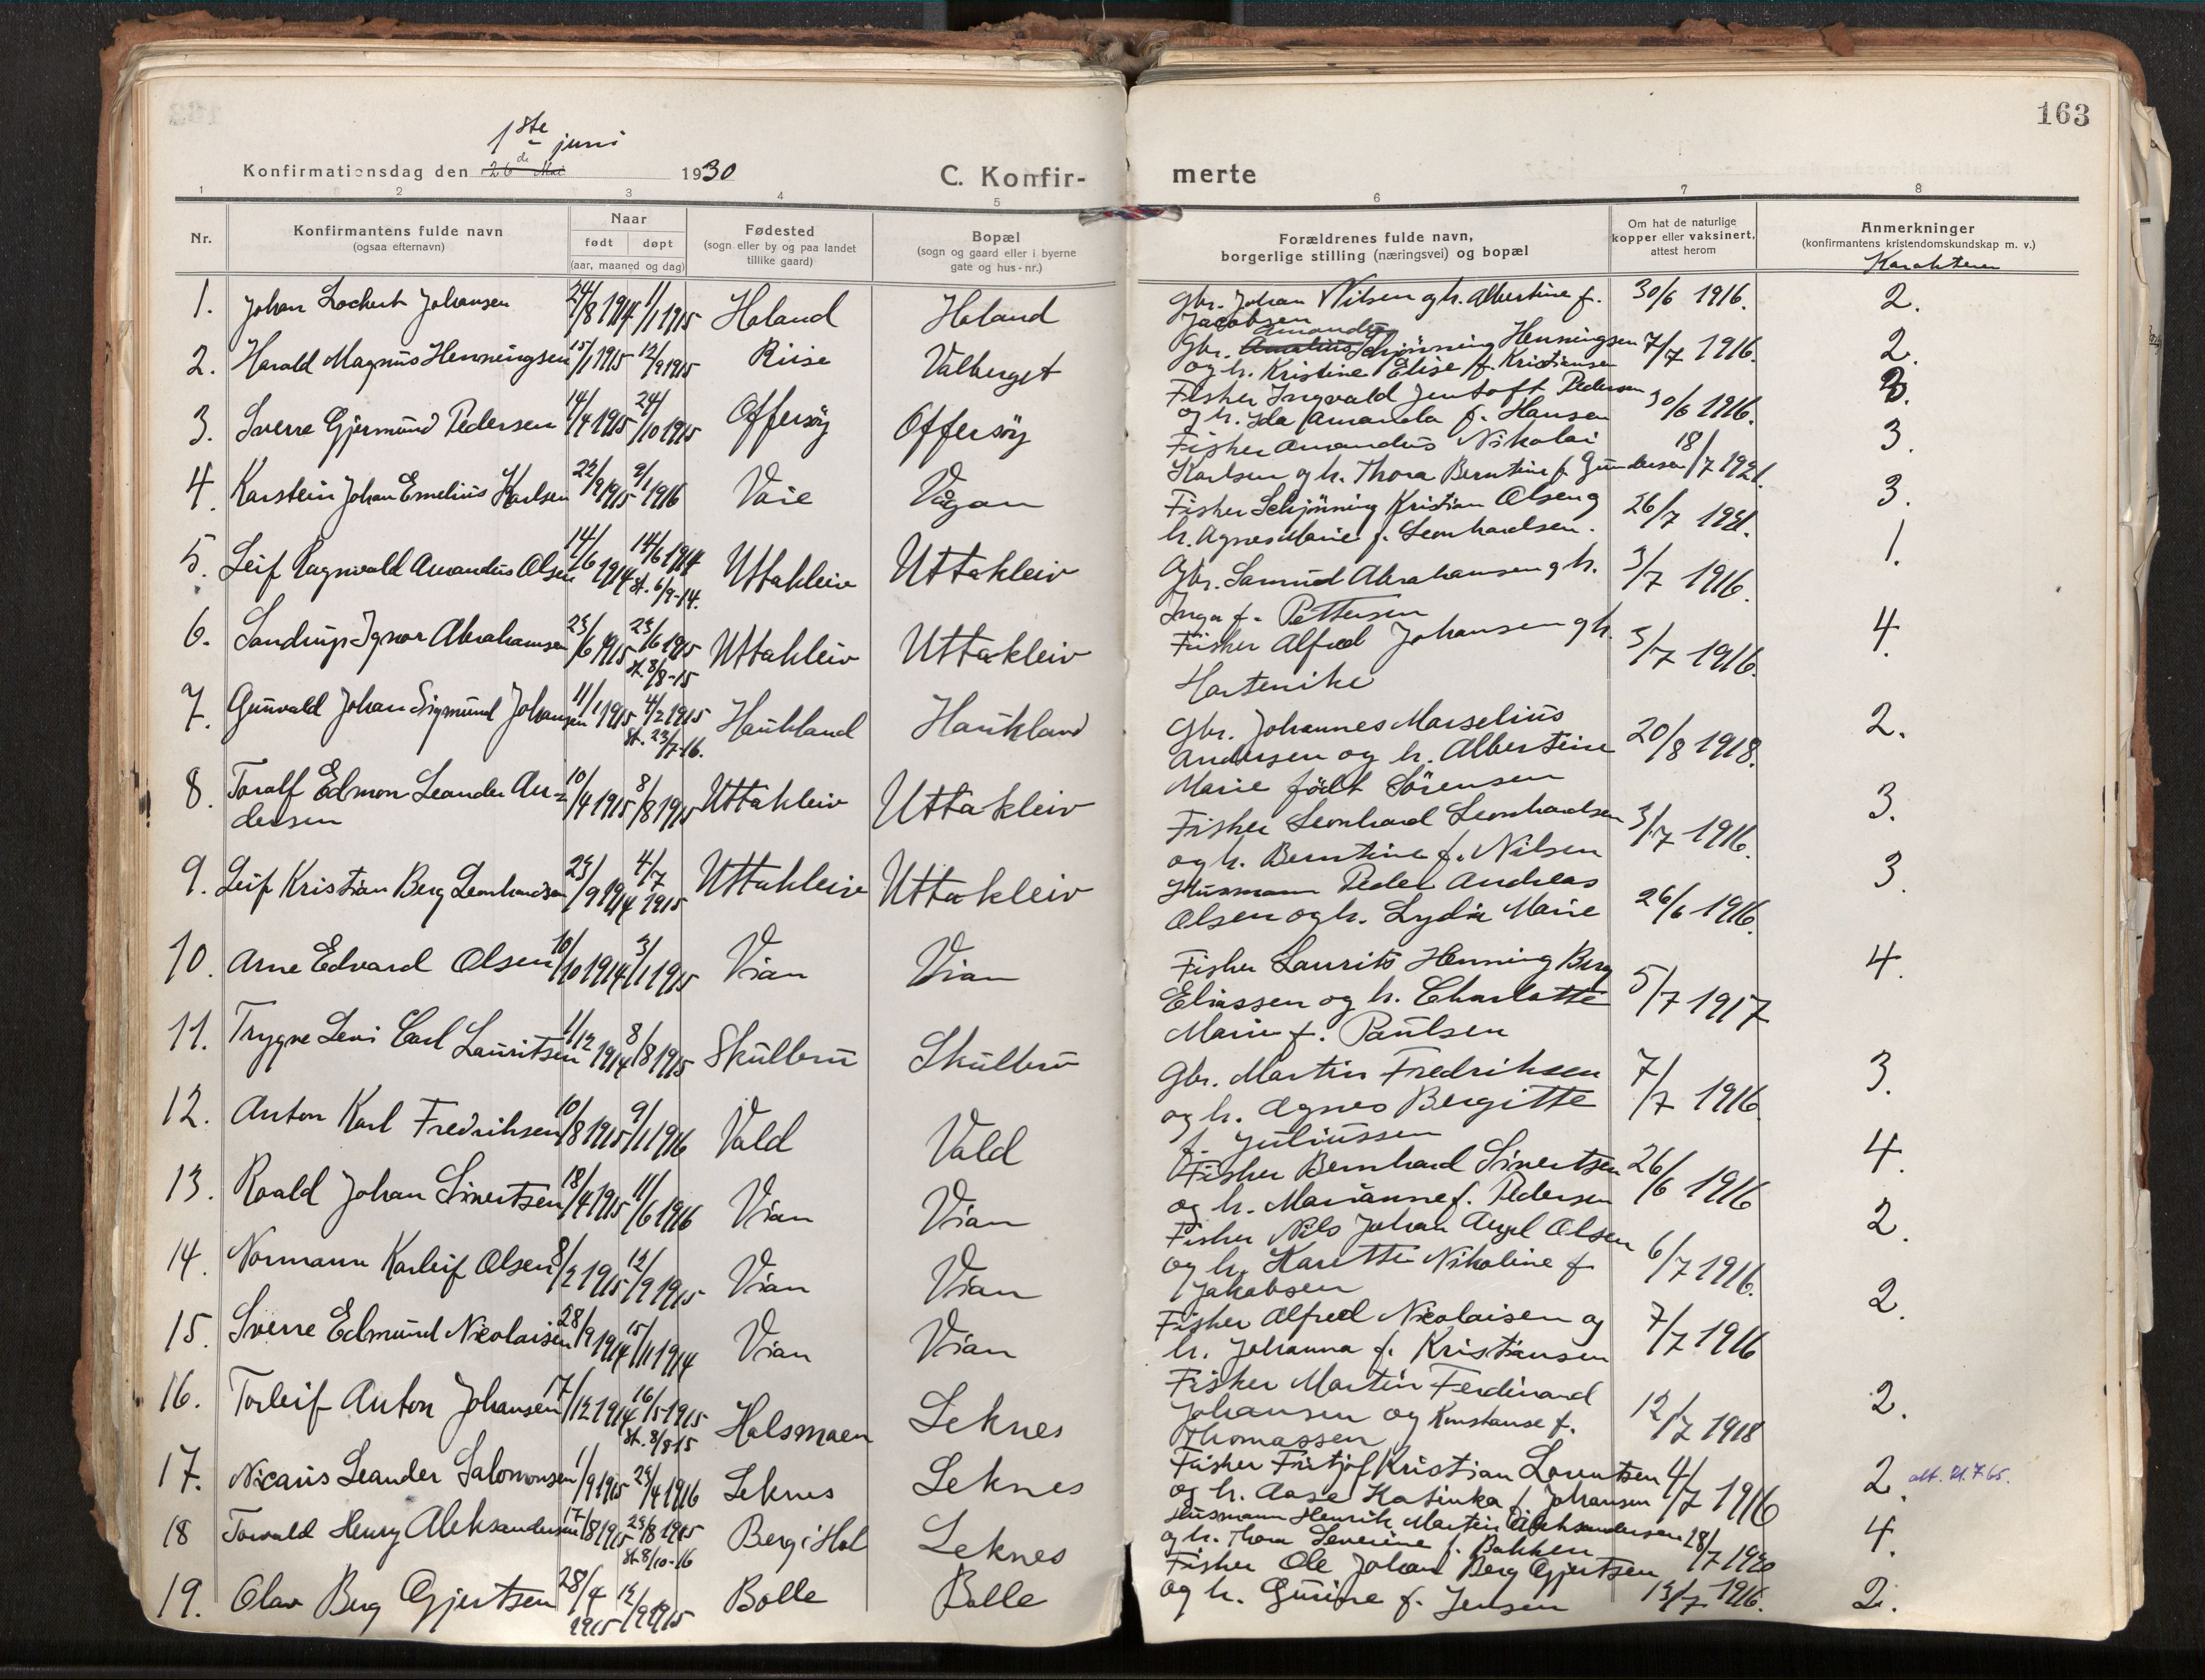 163
1ste juni
Konfirmationsdag den 26de Mai 1930
C. Konfir-
merte
1 2 3 4 5 6 7 8
Nr.
Konfirmantens fulde navn
(ogsaa efternavn)
Naar
født døpt
(aar, maaned og dag)
Fødested
(sogn eller by og paa landet
tillike gaard)
Bopæl
(sogn og gaard eller i byerne
gate og hus-nr.)
Forældrenes fulde navn,
borgerlige stilling (næringsvei) og bopæl
Om hat de naturlige
kopper eller vaksinert,
attest herom
Anmerkninger
(konfirmantens kristendomskundskap m. v.)
Karakteren
1. Johan Lockert Johansen 24/8 1914 1/1 1915 Holand Holand
Gbr. Johan Nilsen og h. Albertine f. 30/6 1916. 2.
Jacobsen
2. Harald Magnus Henningsen 15/1 1915 12/9 1915 Riise Valberget
Amandus
Gbr. Schjønning Henningsen 7/7 1916. 2.
og h. Kristine Elise f. Kristiansen
3. Sverre Gjermund Pedersen 14/4 1915 24/10 1915 Offersöy Offersöy
Fisker Ingvald Jentoft Pedersen 30/6 1916.
og h. Ida Amanda f. Hansen
4. Karstein Johan Emelius Karlsen 22/9 1915 9/1 1916 Vaie Vågan
Fisker Amandus Nikolai 18/7 1921. 3.
Karlsen og h. Thora Berntine f. Gundersen
5. Leif Ragnvald Amandus Olsen 14/6 1914 14/6 1914 Uttakleiv Uttakleiv
st. 6/9-14.
Fisker Schjönning Kristian Olsen og 26/7 1921. 3.
h. Agnes Marie f. Leonhardsen.
6. Sandrup Ignor Abrahamsen 23/6 1915 23/6 1915 Uttakleiv Uttakleiv
st. 8/8-15
Gbr. Samuel Abrahamsen og h. 3/7 1916. 1.
Inga f. Pettersen
7. Gunvald Johan Sigmund Johansen 11/1 1915 4/2 1915 Haukland Haukland
st. 23/7-16.
Fisker Alfred Johansen og h. 3/7 1916. 4.
Hartvike
8. Toralf Edmon Leander An- 10/4 1915 8/8 1915 Uttakleiv Uttakleiv
dersen
Gbr. Johannes Marselius 20/8 1918. 2.
Andersen og h. Albertine
Marie født Sörensen
9. Leif Kristian Berg Leonhardsen 23/9 1914 4/7 1915 Uttakleiv Uttakleiv
Fisker Leonhard Leonhardsen 3/7 1916. 3.
og h. Berntine f. Nilsen
10. Arne Edvard Olsen 10/10 1914 3/1 1915 Vian Vian
Husmann Peder Andreas 26/6 1916. 3.
Olsen og h. Lydia Marie
11. Trygve Levi Carl Lauritsen 11/12 1914 8/8 1915 Skulbru Skulbru
Fisker Laurits Henning Berg 5/7 1917 4.
Eliassen og h. Charlotte
Marie f. Paulsen
12. Anton Karl Fredriksen 10/8 1915 9/1 1916 Vold Vold
Gbr. Martin Fredriksen 7/7 1916. 3.
og h. Agnes Bergitte
f. Juliussen
13. Roald Johan Sivertsen 18/4 1915 11/6 1916 Vian Vian
Fisker Bernhard Sivertsen 26/6 1916 4.
og h. Marianne f. Pedersen
14. Normann Karleif Olsen 8/2 1915 12/9 1915 Vian Vian
Fisker Nils Johan Angel Olsen 6/7 1916. 2.
og h. Karette Nikoline f
Jakobsen
15. Sverre Edmund Nicolaisen 28/9 1914 15/11 1914 Vian Vian
Fisker Alfred Nicolaisen og 7/7 1916 2.
h. Johanna f. Kristiansen
16. Torleif Anton Johansen 17/12 1914 16/5 1915 Holsmoen Leknes
st. 8/8 15
Fisker Martin Ferdinand 12/7 1918 2.
Johansen og Konstanse f.
Thomassen
17. Nicaris Leander Salomonsen 1/9 1915 24/4 1916 Leknes Leknes
Fisker Fritjof Kristian Lorentsen 4/7 1916 2. att. 21.7.65.
og h. Aase Katinka f. Johansen
18 Torvald Henry Aleksandersen 17/8 1915 29/8 1915 Berg i Hol Leknes
st. 8/10-16
Husmann Henrik Martin Aleksandersen 28/7 1920 4.
og h. Thora Severine f. Bakken
19. Olav Berg Gjertsen 28/4 1915 12/9 1915 Bolle Bolle
Fisker Ole Johan Berg Gjertsen 13/7 1916. 2.
og h. Gurine f. Jensen